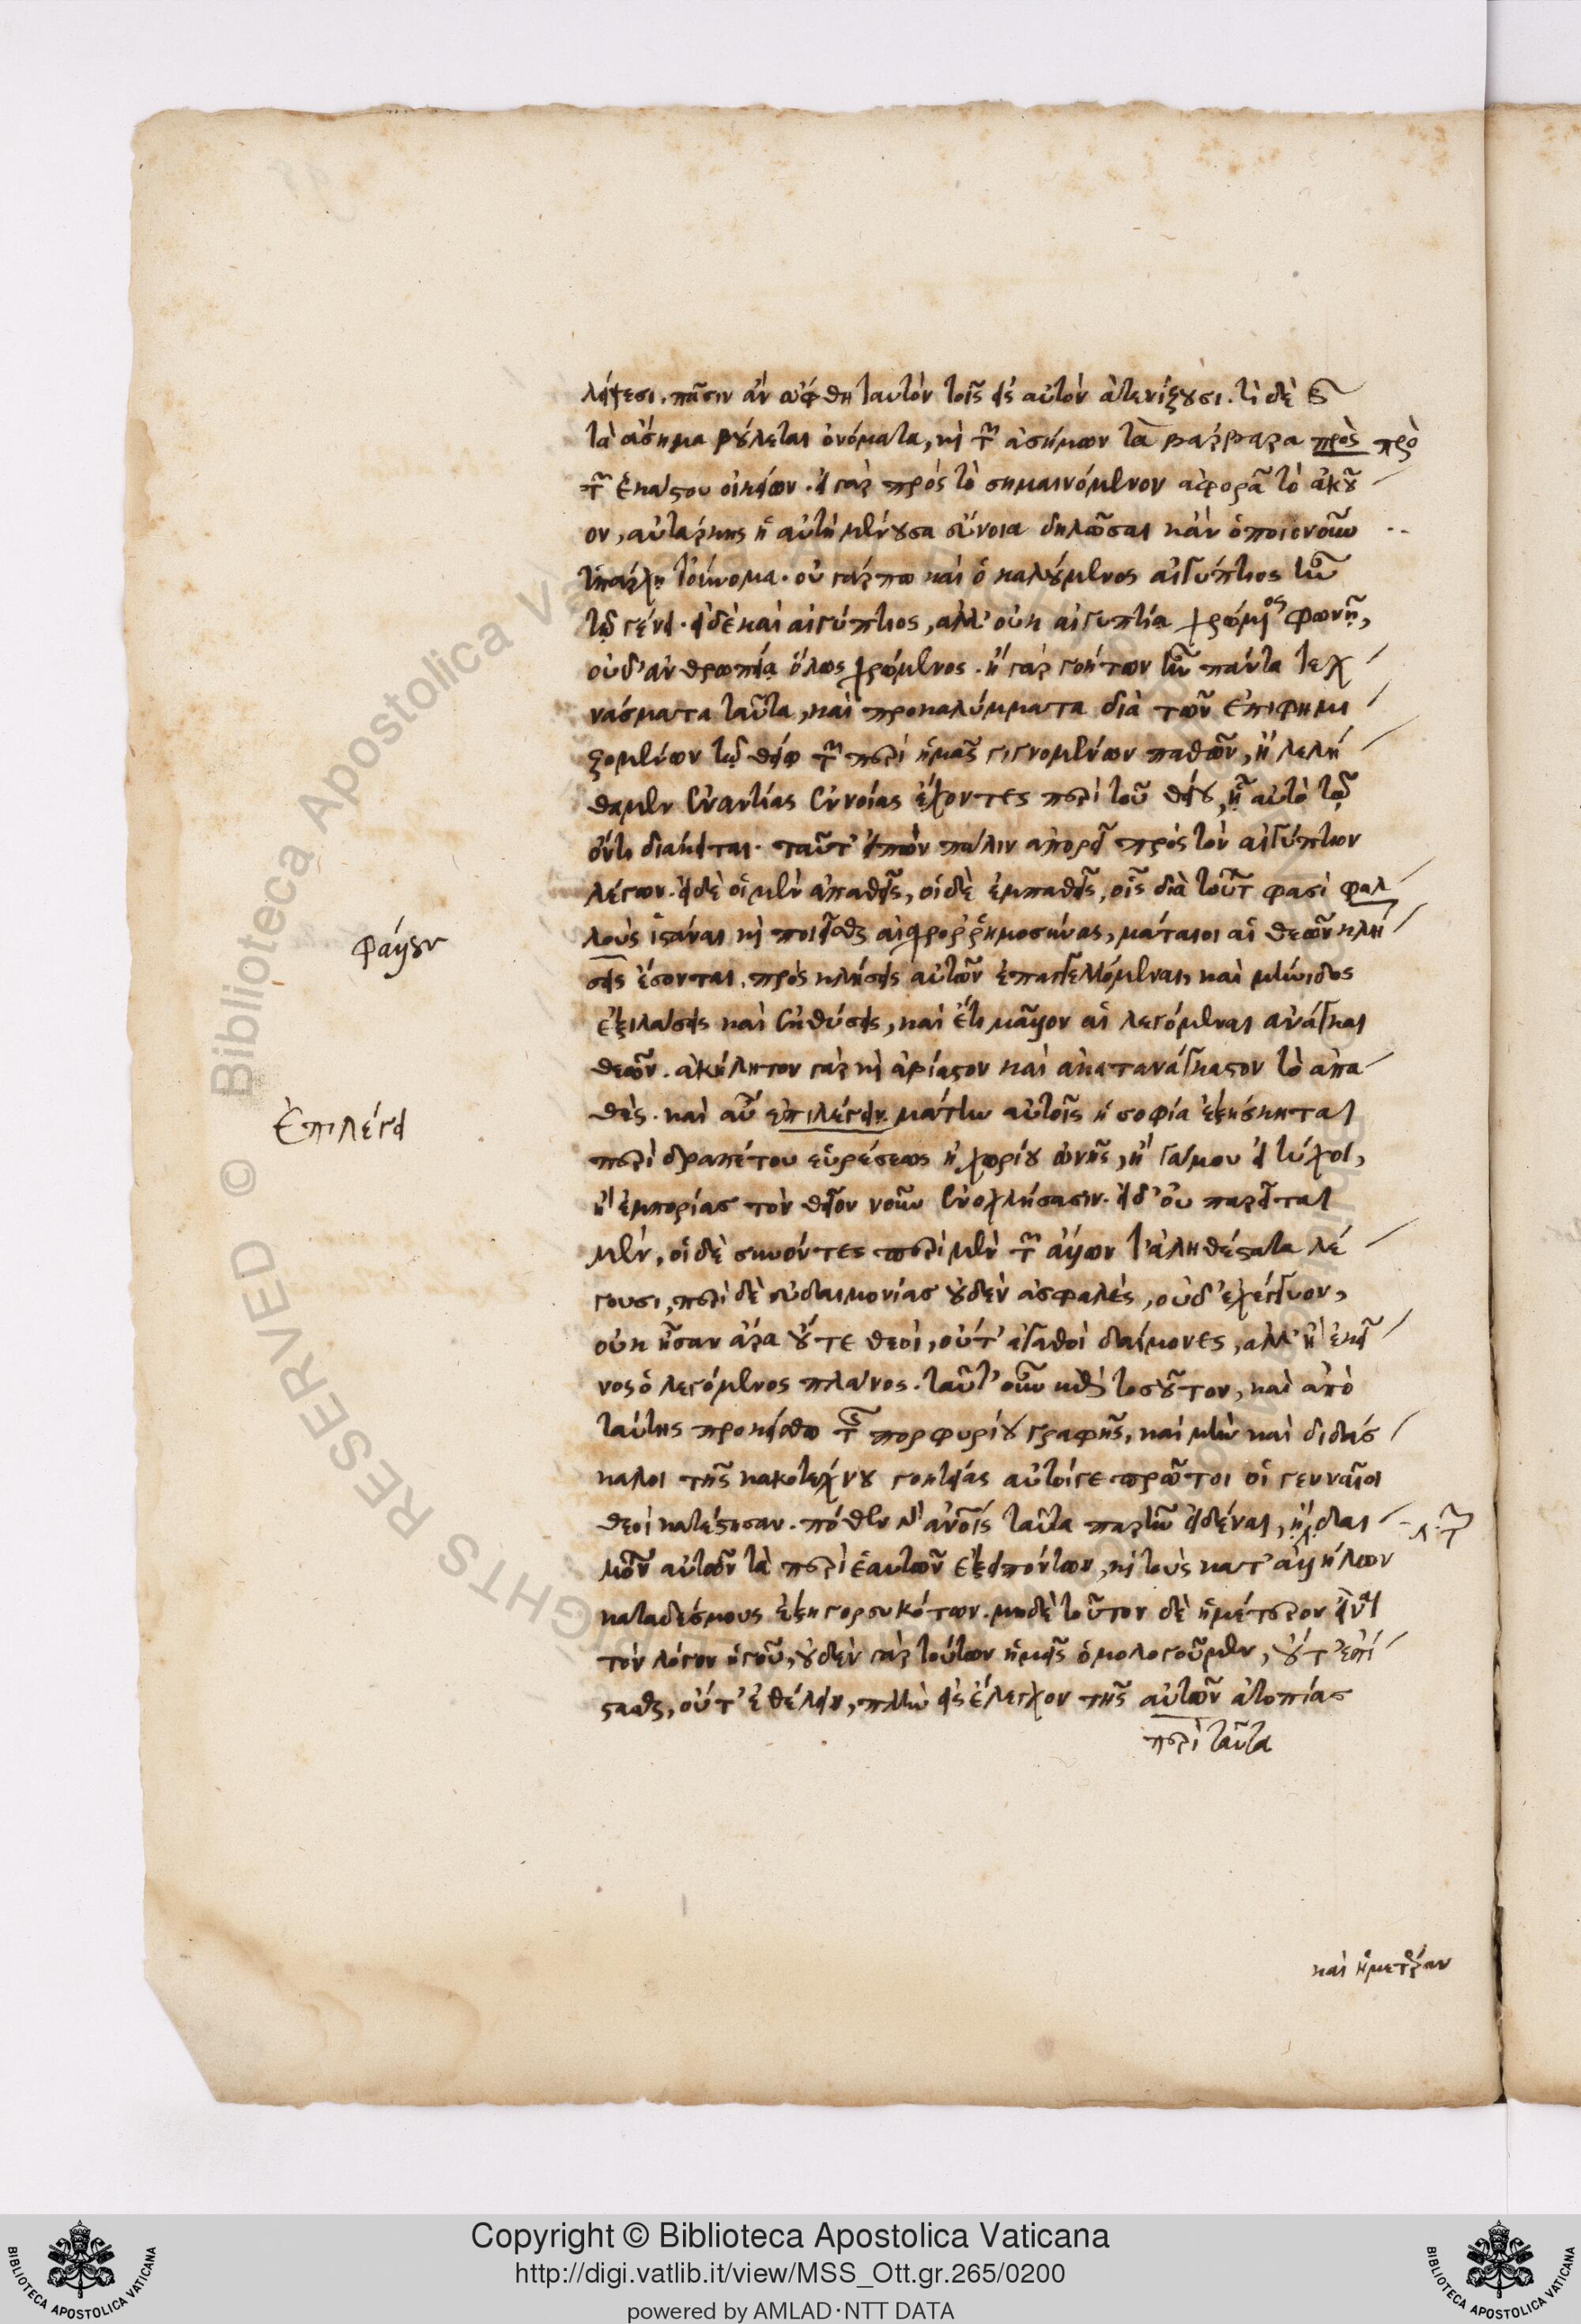 λήψεσι. πᾶσιν ἂν ὤφθη ταυτὸν τοῖς εἰς αὐτὸν ἀτενίζουσι. τί δὲ καὶ
τὰ ἄσημα βούλεται ὀνόματα, καὶ τῶν ἀσήμων τὰ βάρβαρα πρὸς πρὸ
τῶν ἑκάστου οἰκείων. εἰ γὰρ πρὸς τὸ σημαινόμενον ἀφορᾷ τὸ ἀκοῦ
ον, αὐτάρκης ἡ αὐτὴ μένουσα ἔννοια δηλῶσαι κἂν ὁποιονοῦν
ὑπάρχῃ τοὔνομα. οὐ γάρ που καὶ ὁ καλούμενος αἰγύπτιος ἦν
τῷ γένει. εἰ δὲ καὶ αἰγύπτιος, ἀλλ' οὐκ αἰγυπτίᾳ χρώμενος φωνῇ,
οὐδ' ἀνθρωπείᾳ ὅλως χρώμενος. ἢ γὰρ γοήτων ἦν πάντα τεχ
νάσματα ταῦτα, καὶ προκαλύμματα διὰ τῶν ἐπιφημι
ζομένων τῷ θείῳ τῶν περὶ ἡμᾶς γιγνομένων παθῶν, ἢ λελή
θαμεν ἐναντίας ἐννοίας ἔχοντες περὶ τοῦ θείου, ἢ αὐτὸ τῷ
ὄντι διάκειται. ταῦτ' εἰπὼν πάλιν ἀπορεῖ πρὸς τὸν αἰγύπτιον
λέγων. εἰ δὲ οἱ μὲν ἀπαθεῖς, οἱ δὲ ἐμπαθεῖς, οἷς διὰ τοῦτο φασὶ φαλ
λοὺς ἱστάναι καὶ ποιεῖσθαι αἰσχρορρημοσύνας, μάταιοι αἱ θεῶν κλή
σεις ἔσονται, προσκλήσεις αὐτῶν ἐπαγγελλόμεναι, καὶ μήνιδος
ἐξιλάσεις καὶ ἐκθύσεις, καὶ ἔτι μᾶλλον αἱ λεγόμεναι ἀνάγκαι
θεῶν. ἀκήλητον γὰρ καὶ ἀβίαστον καὶ ἀκατανάγκαστον τὸ ἀπα
θές. καὶ αὖ ἐπιλέγειν μάτην αὐτοῖς ἡ σοφία ἐξήσκηται
περὶ δραπέτου εὑρέσεως ἢ χωρίου ὠνῆς, ἢ γάμου εἰ τύχοι,
ἢ ἐμπορίας τὸν θεῖον νοῦν ἐνοχλήσασιν. εἰ δ' οὐ παρεῖται
μέν, οἱ δὲ συνόντες περὶ μὲν τῶν ἄλλων τἀληθέστατα λέ
γουσι, περὶ δὲ εὐδαιμονίας οὐδὲν ἀσφαλές, οὐδ' ἐχέγγυον,
οὐκ ἦσαν ἄρα οὔτε θεοί, οὔτ' ἀγαθοὶ δαίμονες, ἀλλ' ἢ ἐκεῖ
νος ὁ λεγόμενος πλάνος. ταῦτ' οὖν καὶ ἐπὶ τοσοῦτον, καὶ ἀπὸ
ταύτης προκείσθω τῆς πορφυρίου γραφῆς, καὶ μὴν καὶ διδάσ
καλοι τῆς κακοτέχνου γοητείας αὐτοί γε πρῶτοι οἱ γενναῖοι
θεοὶ κατέστησαν. πόθεν δ' ἀνθρώποις ταῦτα παρῆν εἰδέναι, ἢ δαι
μόνων αὐτῶν τὰ περὶ ἑαυτῶν ἐξειπόντων, καὶ τοὺς κατ' ἀλλήλων
καταδέσμους ἐξηγορευκότων. μηδὲ τοῦτον δὲ ἡμέτερον εἶναι
τὸν λόγον ἡγοῦ, οὐδὲν γὰρ τούτων ἡμεῖς ὁμολογοῦμεν, οὔτ' ἐπί
στασθαι, οὔτ' ἐθέλειν, πλὴν εἰς ἔλεγχον τῆς αὐτῶν ἀτοπίας
περὶ ταῦτα
φάλλουν
ἐπιλέγει
καὶ ἡμετέραν